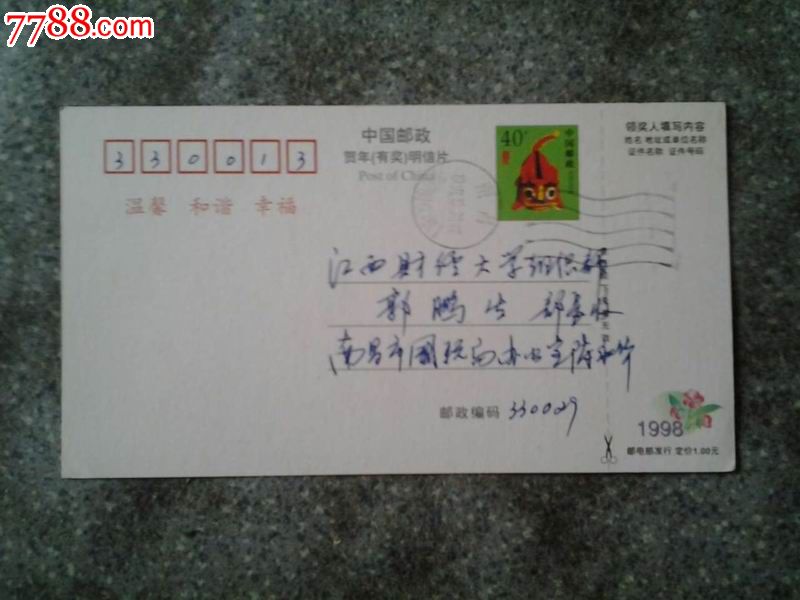 7788.com
中国邮政
贺年(有奖)明信片
Post of China
330013
温馨 和谐 幸福
40分
中国邮政
领奖人填写内容
姓名 地址或单位名称
证件名称 证件号码
江西财经大学组织部
郭鹏 部长收
南昌市国税局办公室陈
邮政编码 330029
1998
邮电部发行 定价1.00元